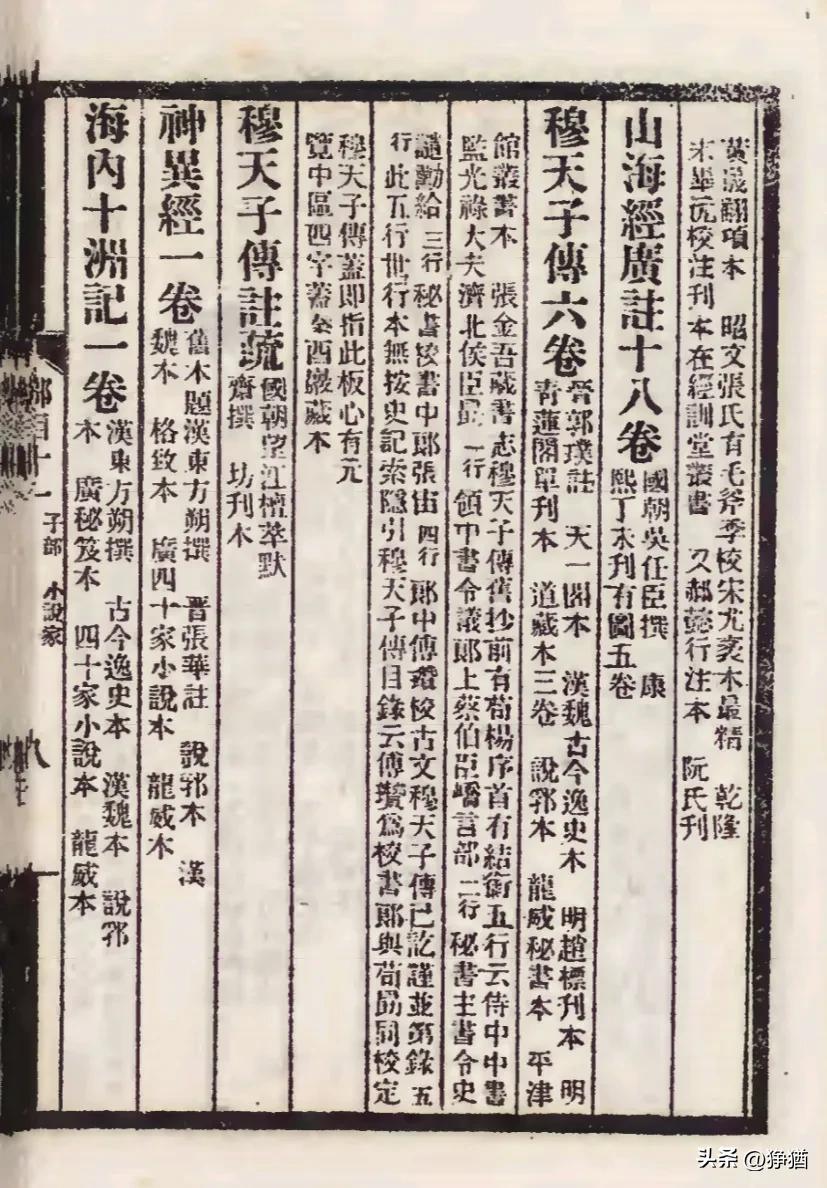 黃晟翻項本　昭文張氏有毛斧季校宋尤袤本最精　乾隆
末畢沅校注刊本在經訓堂叢書　又郝懿行注本　阮氏刊
山海經廣註十八卷
國朝吳任臣撰　康
熙丁未刊有圖五卷
穆天子傳六卷
晉郭璞註　天一閣本　漢魏古今逸史本　明趙標刊本　明
青蓮閣單刊本　道藏本三卷　說郛本　龍威秘書本　平津
館叢書本　張金吾藏書志穆天子傳舊抄前有荀楊序首有結銜五行云侍中中書
監光祿大夫濟北侯臣勗一行領中書令議郎上蔡伯臣嶠言部二行秘書主書令史
譴勳給三行秘書校書中郎張宙四行郎中傅瓚校古文穆天子傳已訖謹並第錄五
行此五行世行本無按史記索隱引穆天子傳目錄云傅瓚為校書郎與荀勗同校定
穆天子傳蓋即指此板心有元
覽中區四字蓋秦酉巖藏本
穆天子傳註疏
國朝望江檀萃默
齋撰　坊刊本
神異經一卷
舊本題漢東方朔撰　晉張華註　說郛本　漢
魏本　格致本　廣四十家小說本　龍威本
海內十洲記一卷
漢東方朔撰　古今逸史本　漢魏本　說郛
本　廣秘笈本　四十家小說本　龍威本
部百十二
子部　小說家
八
头条 @狰猶